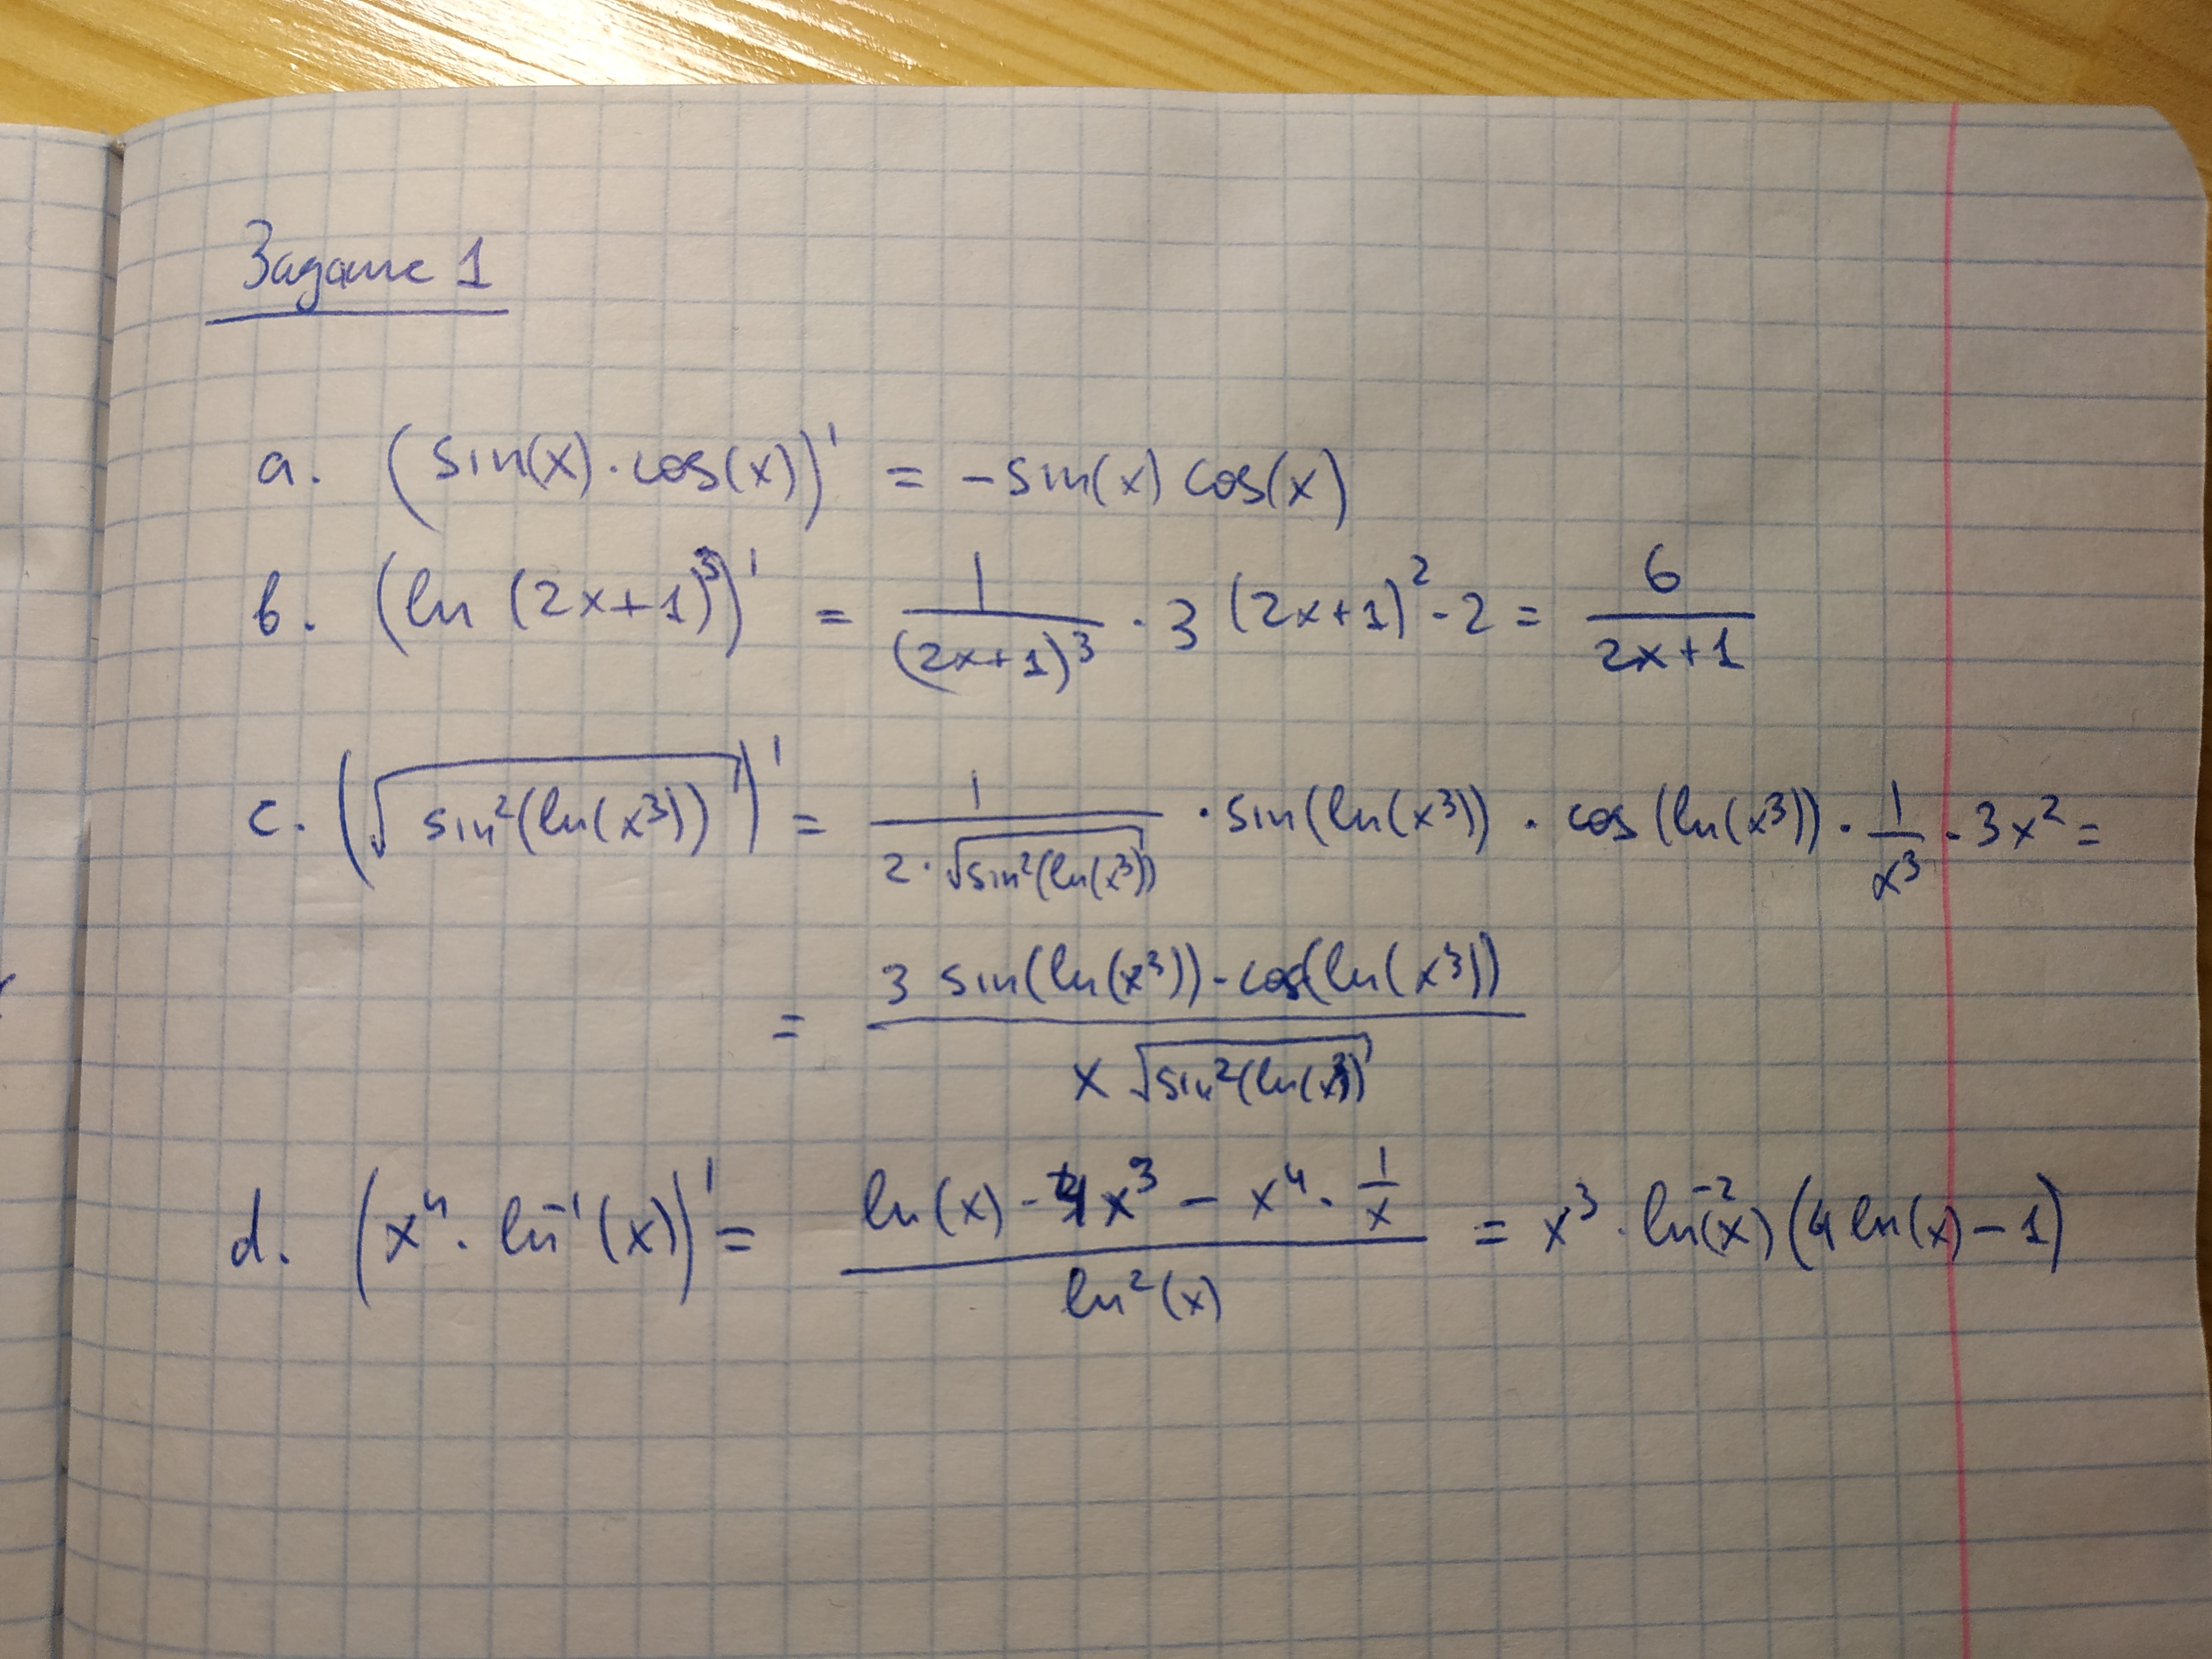 Задание 1
a. (sin(x)·cos(x))' = -sin(x) cos(x)
b. (ln (2x+1)³)' = 1/(2x+1)³ · 3 (2x+1)² · 2 = 6/(2x+1)
c. (√(sin²(ln(x³))))' = 1/(2·√(sin²(ln(x³)))) · sin(ln(x³)) · cos(ln(x³)) · 1/x³ · 3x² =
= (3 sin(ln(x³)) · cos(ln(x³)))/(x √(sin²(ln(x³))))
d. (x⁴ · ln⁻¹(x))' = (ln(x) · 4x³ - x⁴ · 1/x)/(ln²(x)) = x³ · ln⁻²(x) (4 ln(x) - 1)